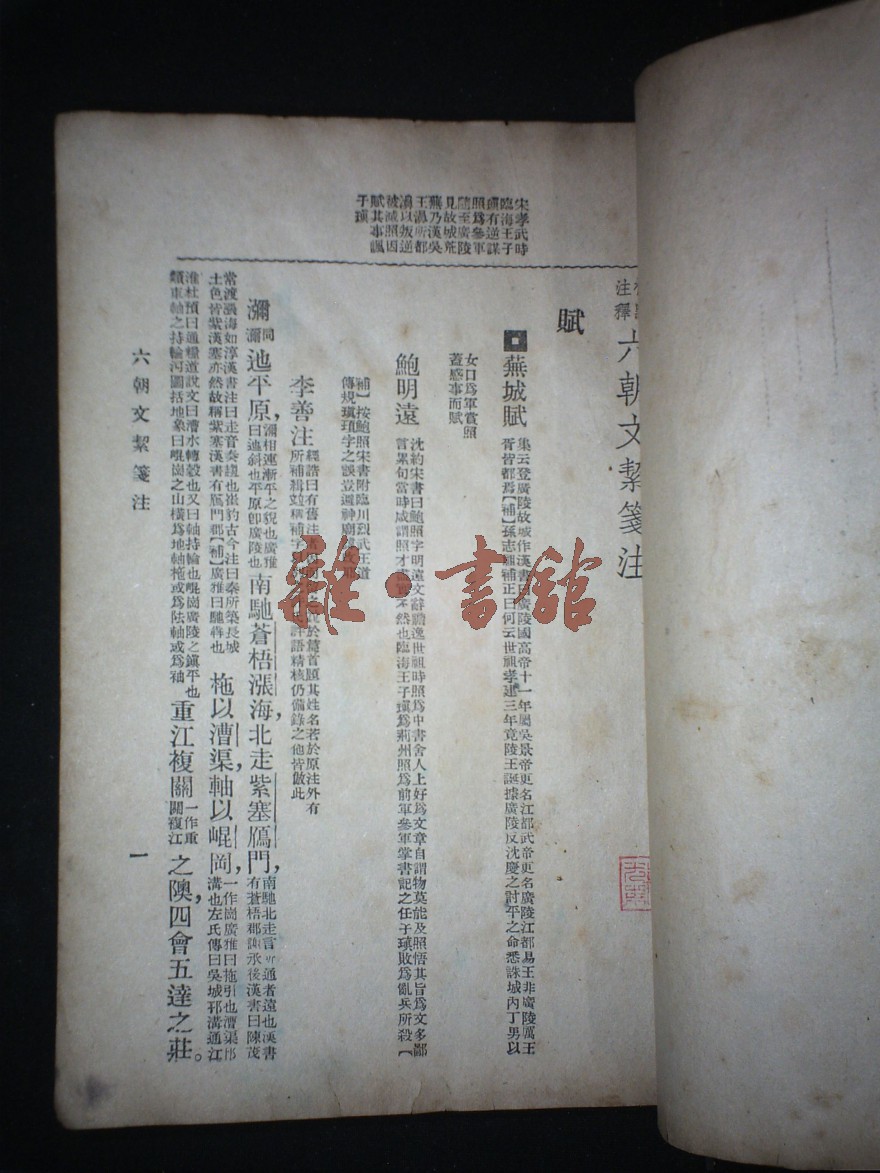 注釋 六朝文絜箋注
宋孝武時
臨海王子
瑱有逆謀
照爲參軍
隨至廣陵
見故城荒
蕪乃漢吳
王濞所都
濞以叛逆
被滅照因
賦其事諷
于瑱
賦
蕪城賦
集云登廣陵故城作漢書 廣陵國高帝十一年屬吳景帝更名江都武帝更名廣陵江都易王非廣陵厲王
胥皆都焉【補】孫志祖補正曰何云世祖孝建三年竟陵王誕據廣陵反沈慶之討平之命悉誅城內丁男以
女口爲軍賞照
蓋感事而賦
鮑明遠
沈約宋書曰鮑照字明遠文辭贍逸世祖時照爲中書舍人上好爲文章自謂物莫能及照悟其旨爲文多鄙
言累句當時咸謂照才 不然也臨海王子瑱爲荊州照爲前軍參軍掌書記之任于瑱敗爲亂兵所殺【
補】按鮑照宋書附臨川烈武王道
傳規瑱頊字之誤
李善注
經誥曰有舊注 於篇首題其姓名若於原注外有
所補輯竝稱補字 評語精核仍備錄之他皆倣此
瀰
同瀰
迆平原，
瀰相連漸平之貌也廣雅
曰迆斜也平原卽廣陵也
南馳蒼梧漲海，北走紫塞鴈門，
南馳北走言所通者遠也漢書
有蒼梧郡謝承後漢書曰陳茂
常渡漲海如淳漢書注曰走音奏趨也崔豹古今注曰秦所築長城
土色皆紫漢塞亦然故稱紫塞漢書有鴈門郡【補】廣雅曰馳犇也
柂以漕渠，軸以崐岡，
一作崗廣雅曰拖引也漕渠邗
溝也左氏傳曰吳城邗溝通江
淮杜預曰通糧道說文曰漕水轉轂也又曰軸持輪也崐崗廣陵之鎭平也
類車軸之持輪河圖括地象曰崐崗之山橫爲地軸柂或爲阹軸或爲袖
重江複關
一作重
關複江
之隩，四會五達之莊。
六朝文絜箋注
一
雜·書館